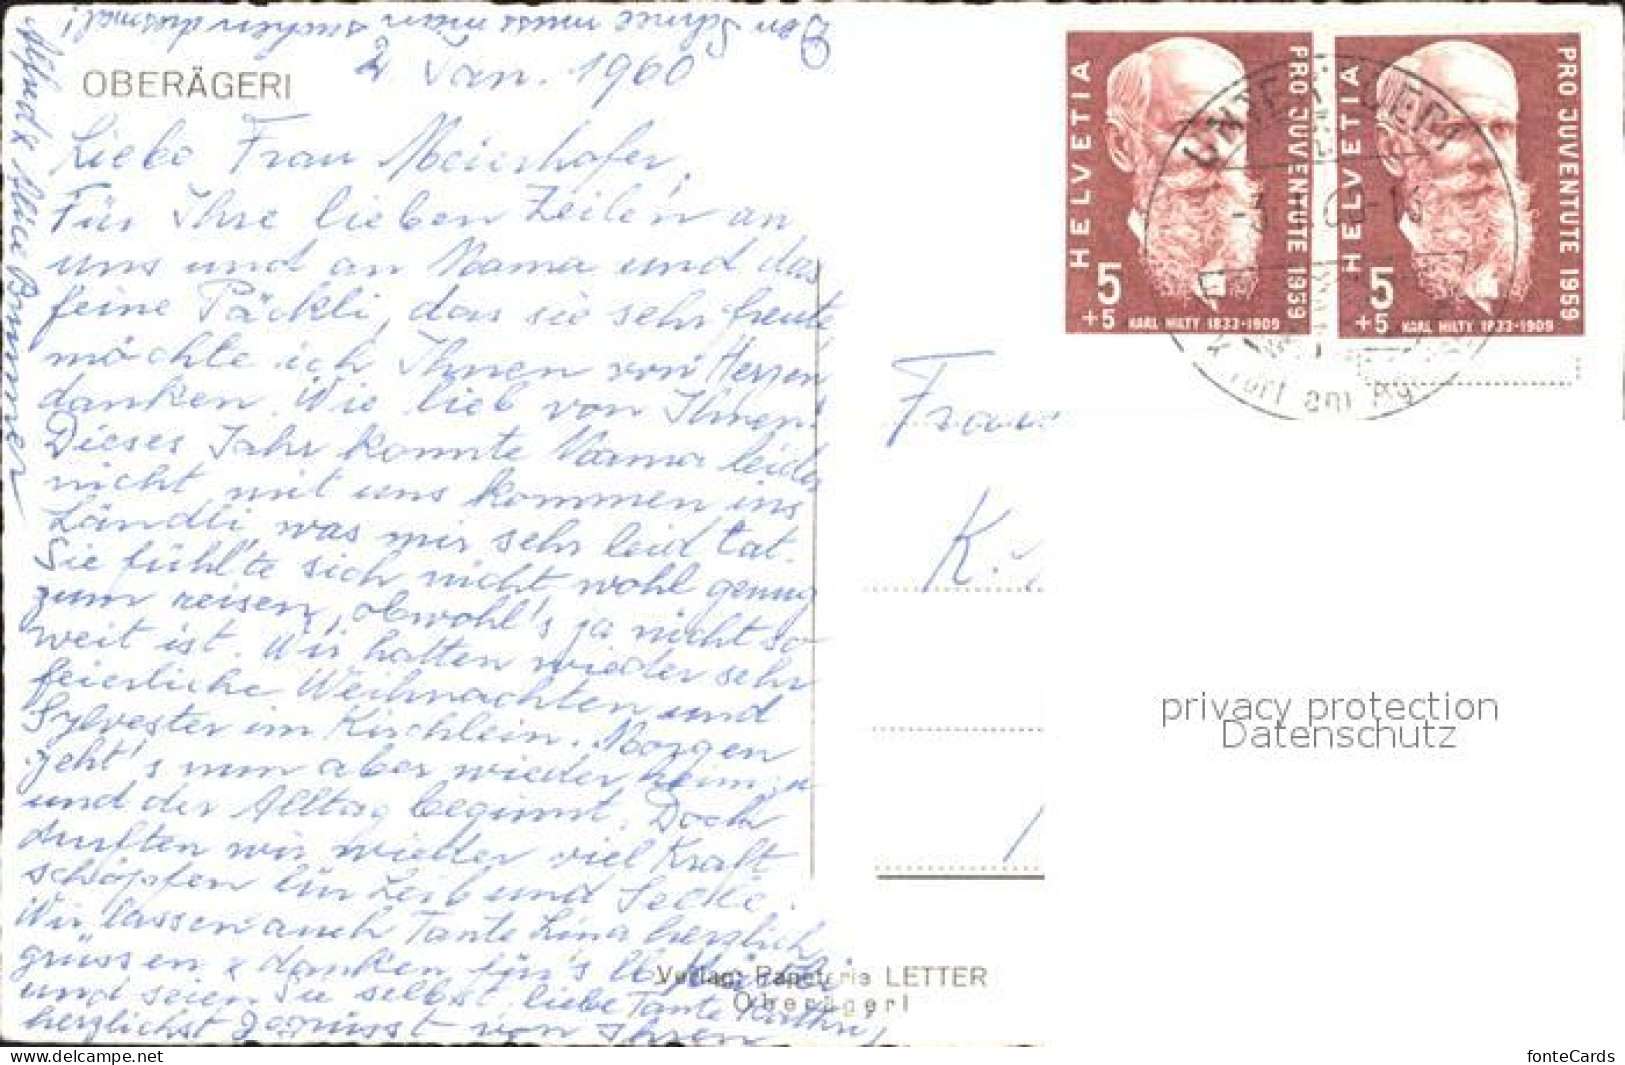 Den Schnee muss man suchen diesmal!
OBERÄGERI
2. Jan. 1960
Liebe Frau Meierhofer,
Für Ihre lieben Zeilen an
uns und an Mama und das
feine Päckli, das sie sehr freute,
möchte ich Ihnen von Herzen
danken. Wie lieb von Ihnen!
Dieses Jahr konnte Mama leider
nicht mit uns kommen ins
Ländli, was mir sehr leid tat.
Sie fühlte sich nicht wohl genug
zum reisen, obwohl's ja nicht so
weit ist. Wir hatten wieder sehr
feierliche Weihnachten und
Sylvester im Kirchlein. Morgen
geht's nun aber wieder heimzu
und der Alltag beginnt. Doch
durften wir wieder viel Kraft
schöpfen für Leib und Seele.
Wir lassen auch Tante Lina herzlich
grüssen & danken für's
und seien Sie selbst, liebe Tante
herzlichst gegrüsst von Ihren
Alfred & Alice Brunner
Verlag: Papeterie LETTER
Oberägeri
HELVETIA
PRO JUVENTUTE 1959
5
+5
KARL HILTY 1833-1909
HELVETIA
PRO JUVENTUTE 1959
5
+5
KARL HILTY 1833-1909
UNTERÄGERI
Kurort am
Frau
K.
privacy protection
Datenschutz
https://www.delcampe.net
fonteCards